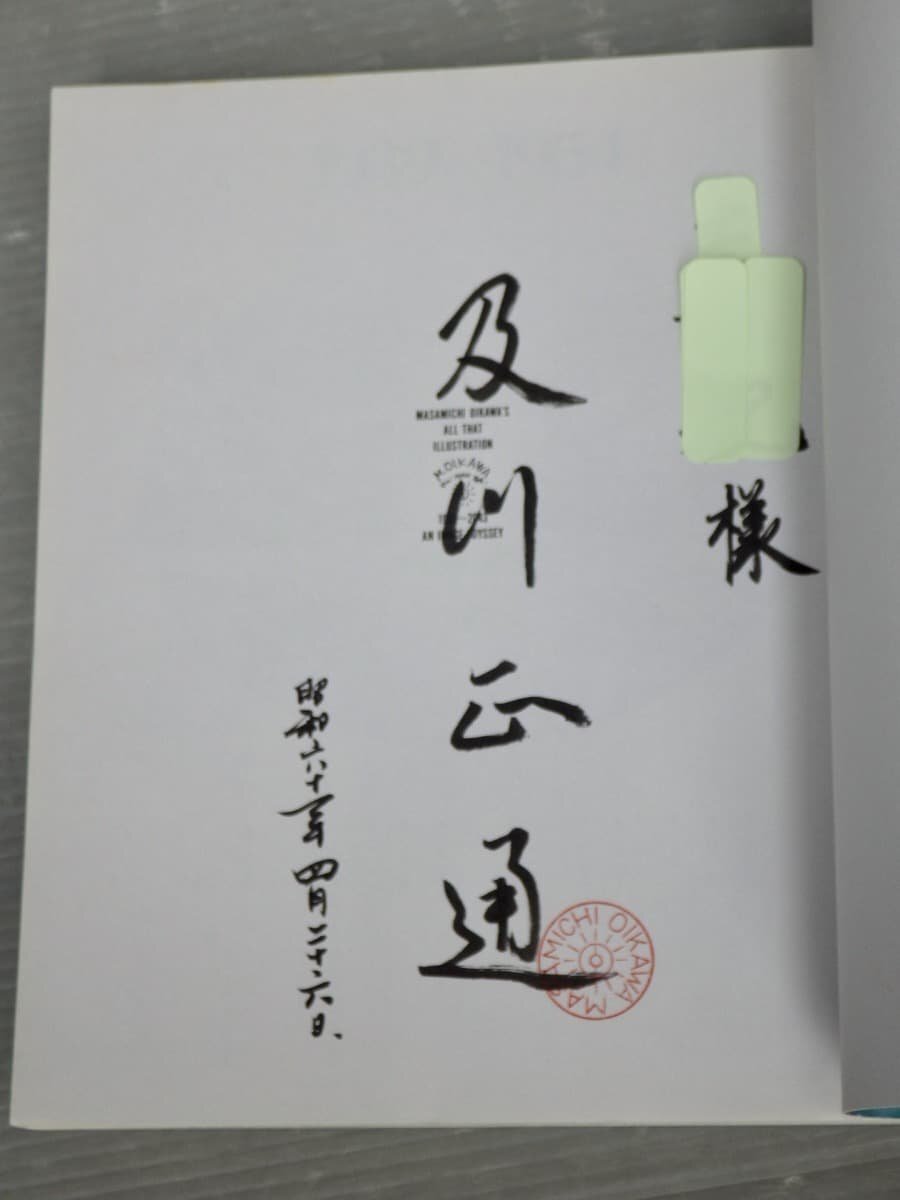 様
及川正通
MASAMICHI OIKAWA'S
ALL THAT
ILLUSTRATION
M.OIKAWA
AN ODYSSEY
MASAMICHI OIKAWA
昭和六十一年四月二十六日、